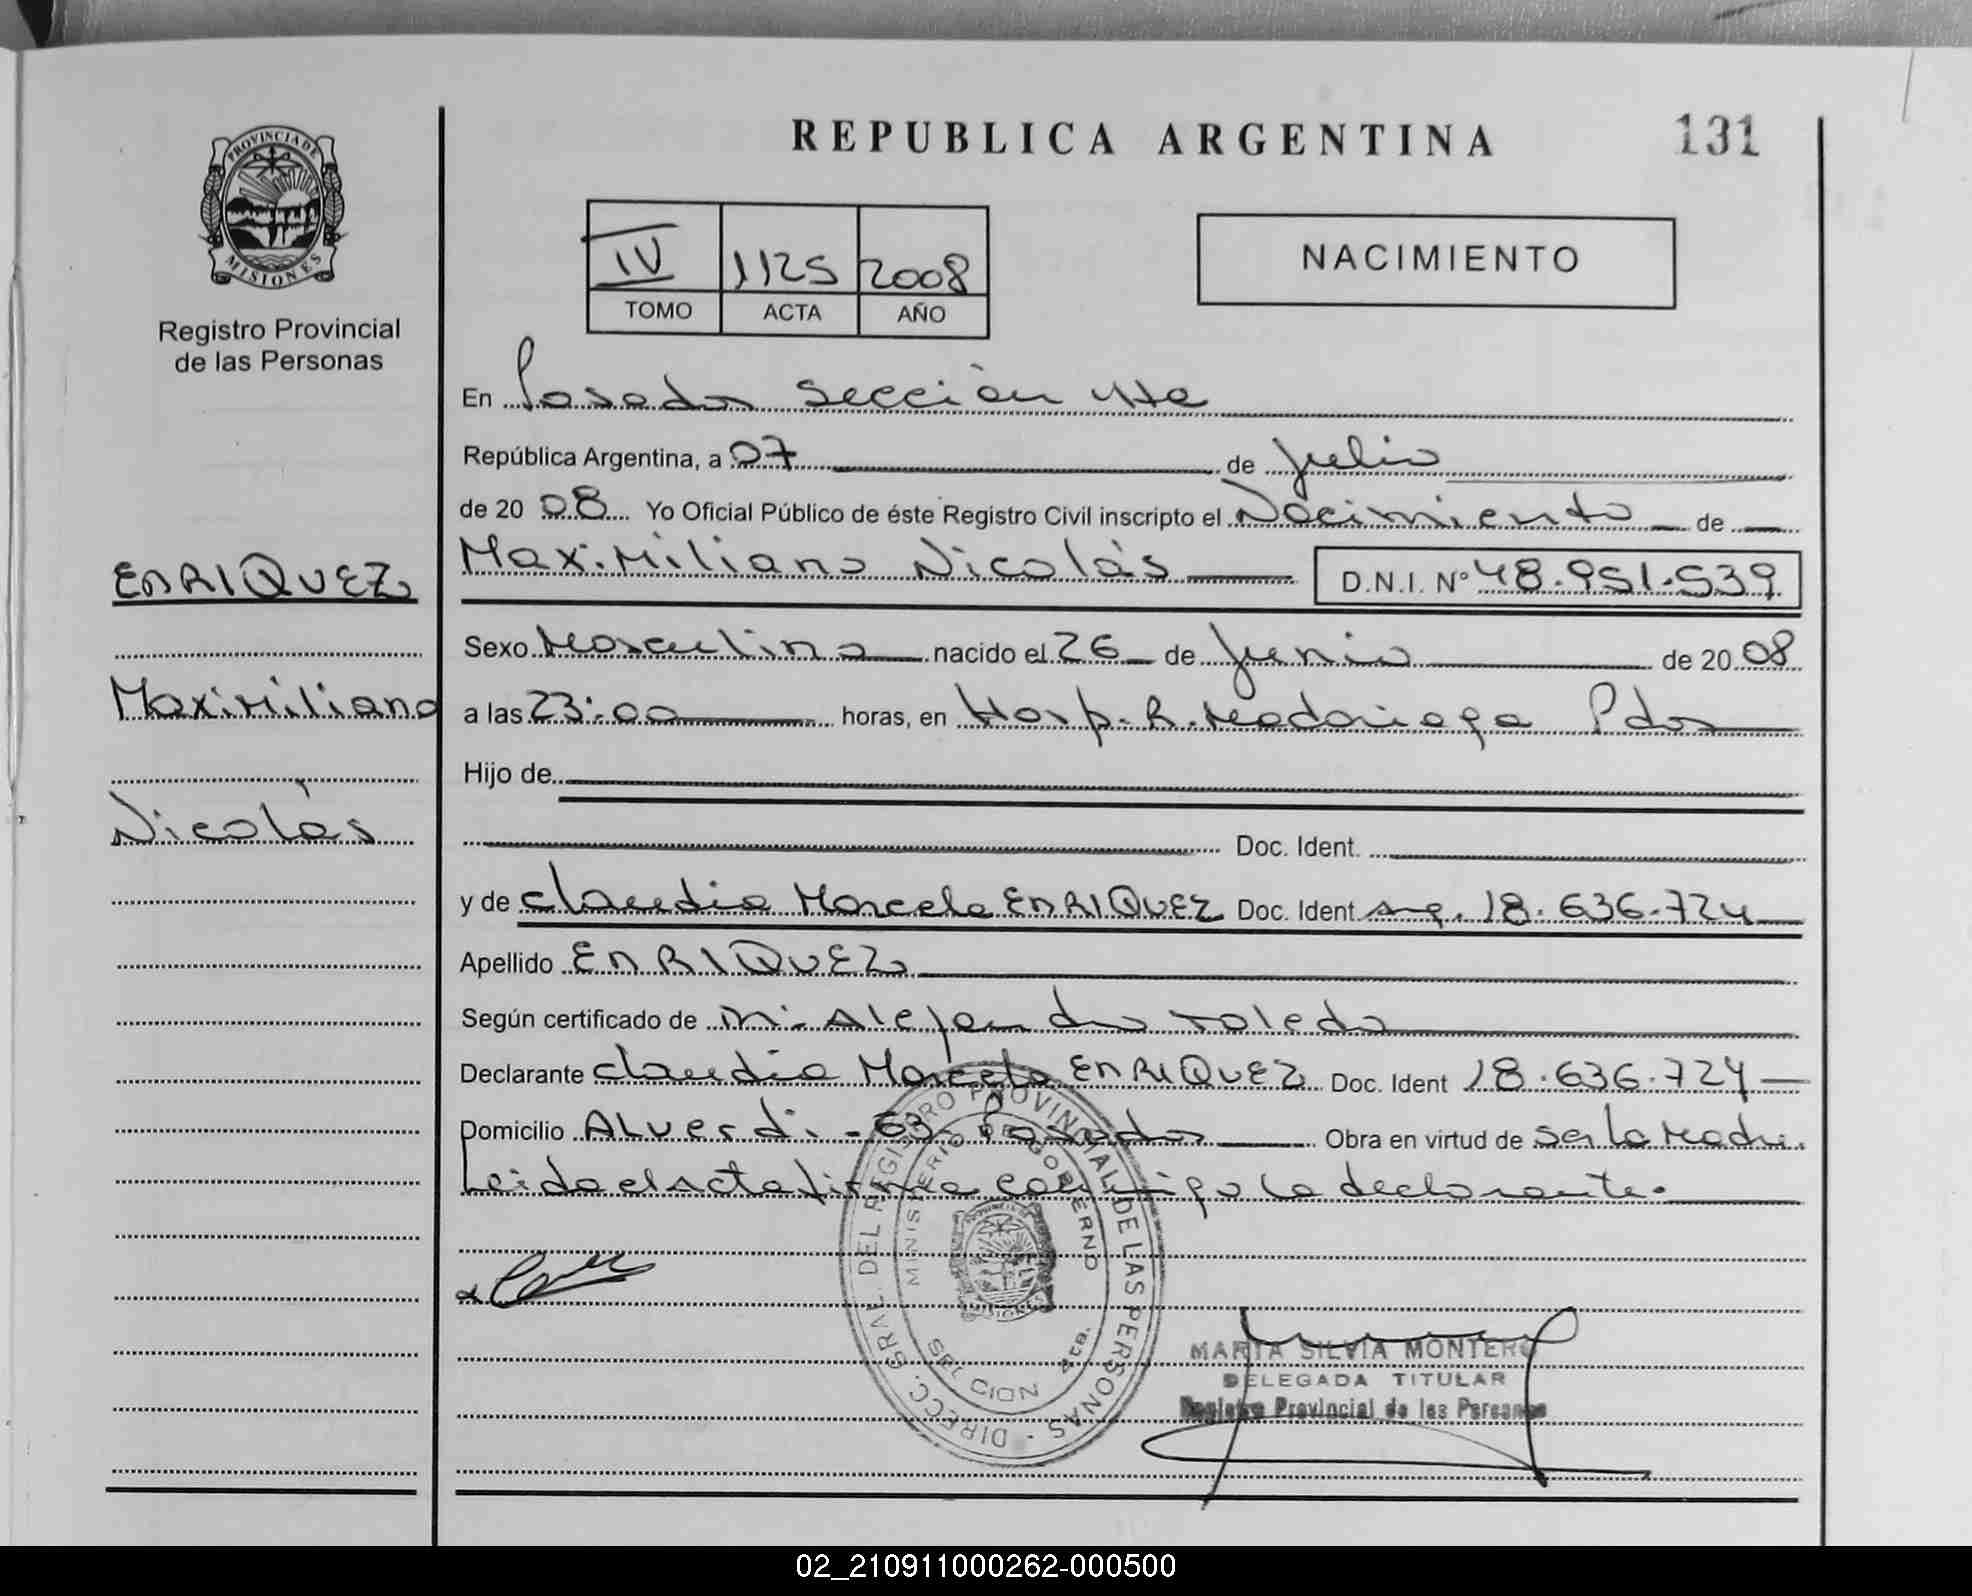 REPUBLICA ARGENTINA
131
PROVINCIA DE
MISIONES
Registro Provincial
de las Personas
IV 1125 2008
TOMO ACTA AÑO
NACIMIENTO
En Posadas Sección 4ta
República Argentina, a 07 de Julio
de 20 08 Yo Oficial Público de éste Registro Civil inscripto el Nacimiento de
Maximiliano Nicolás D.N.I. N° 48.951.539
ENRIQUEZ
Maximiliano
Nicolás
Sexo Masculino nacido el 26 de Junio de 20 08
a las 23:00 horas, en Hosp. R. Madariaga Pdas
Hijo de
Doc. Ident.
y de Claudia Marcela ENRIQUEZ Doc. Ident arg. 18.636.724
Apellido ENRIQUEZ
Según certificado de m. Alejandro Toledo
Declarante Claudia Marcela ENRIQUEZ Doc. Ident 18.636.724
Domicilio Alverdi - 63 Posadas Obra en virtud de ser la madre.
Leida el acta firma conmigo la declarante.
DIRECC. GRAL. DEL REGISTRO PROVINCIAL DE LAS PERSONAS
MINISTERIO DE GOBIERNO
4ta.
MARTA SILVIA MONTERO
DELEGADA TITULAR
Registro Provincial de las Personas
02_210911000262-000500